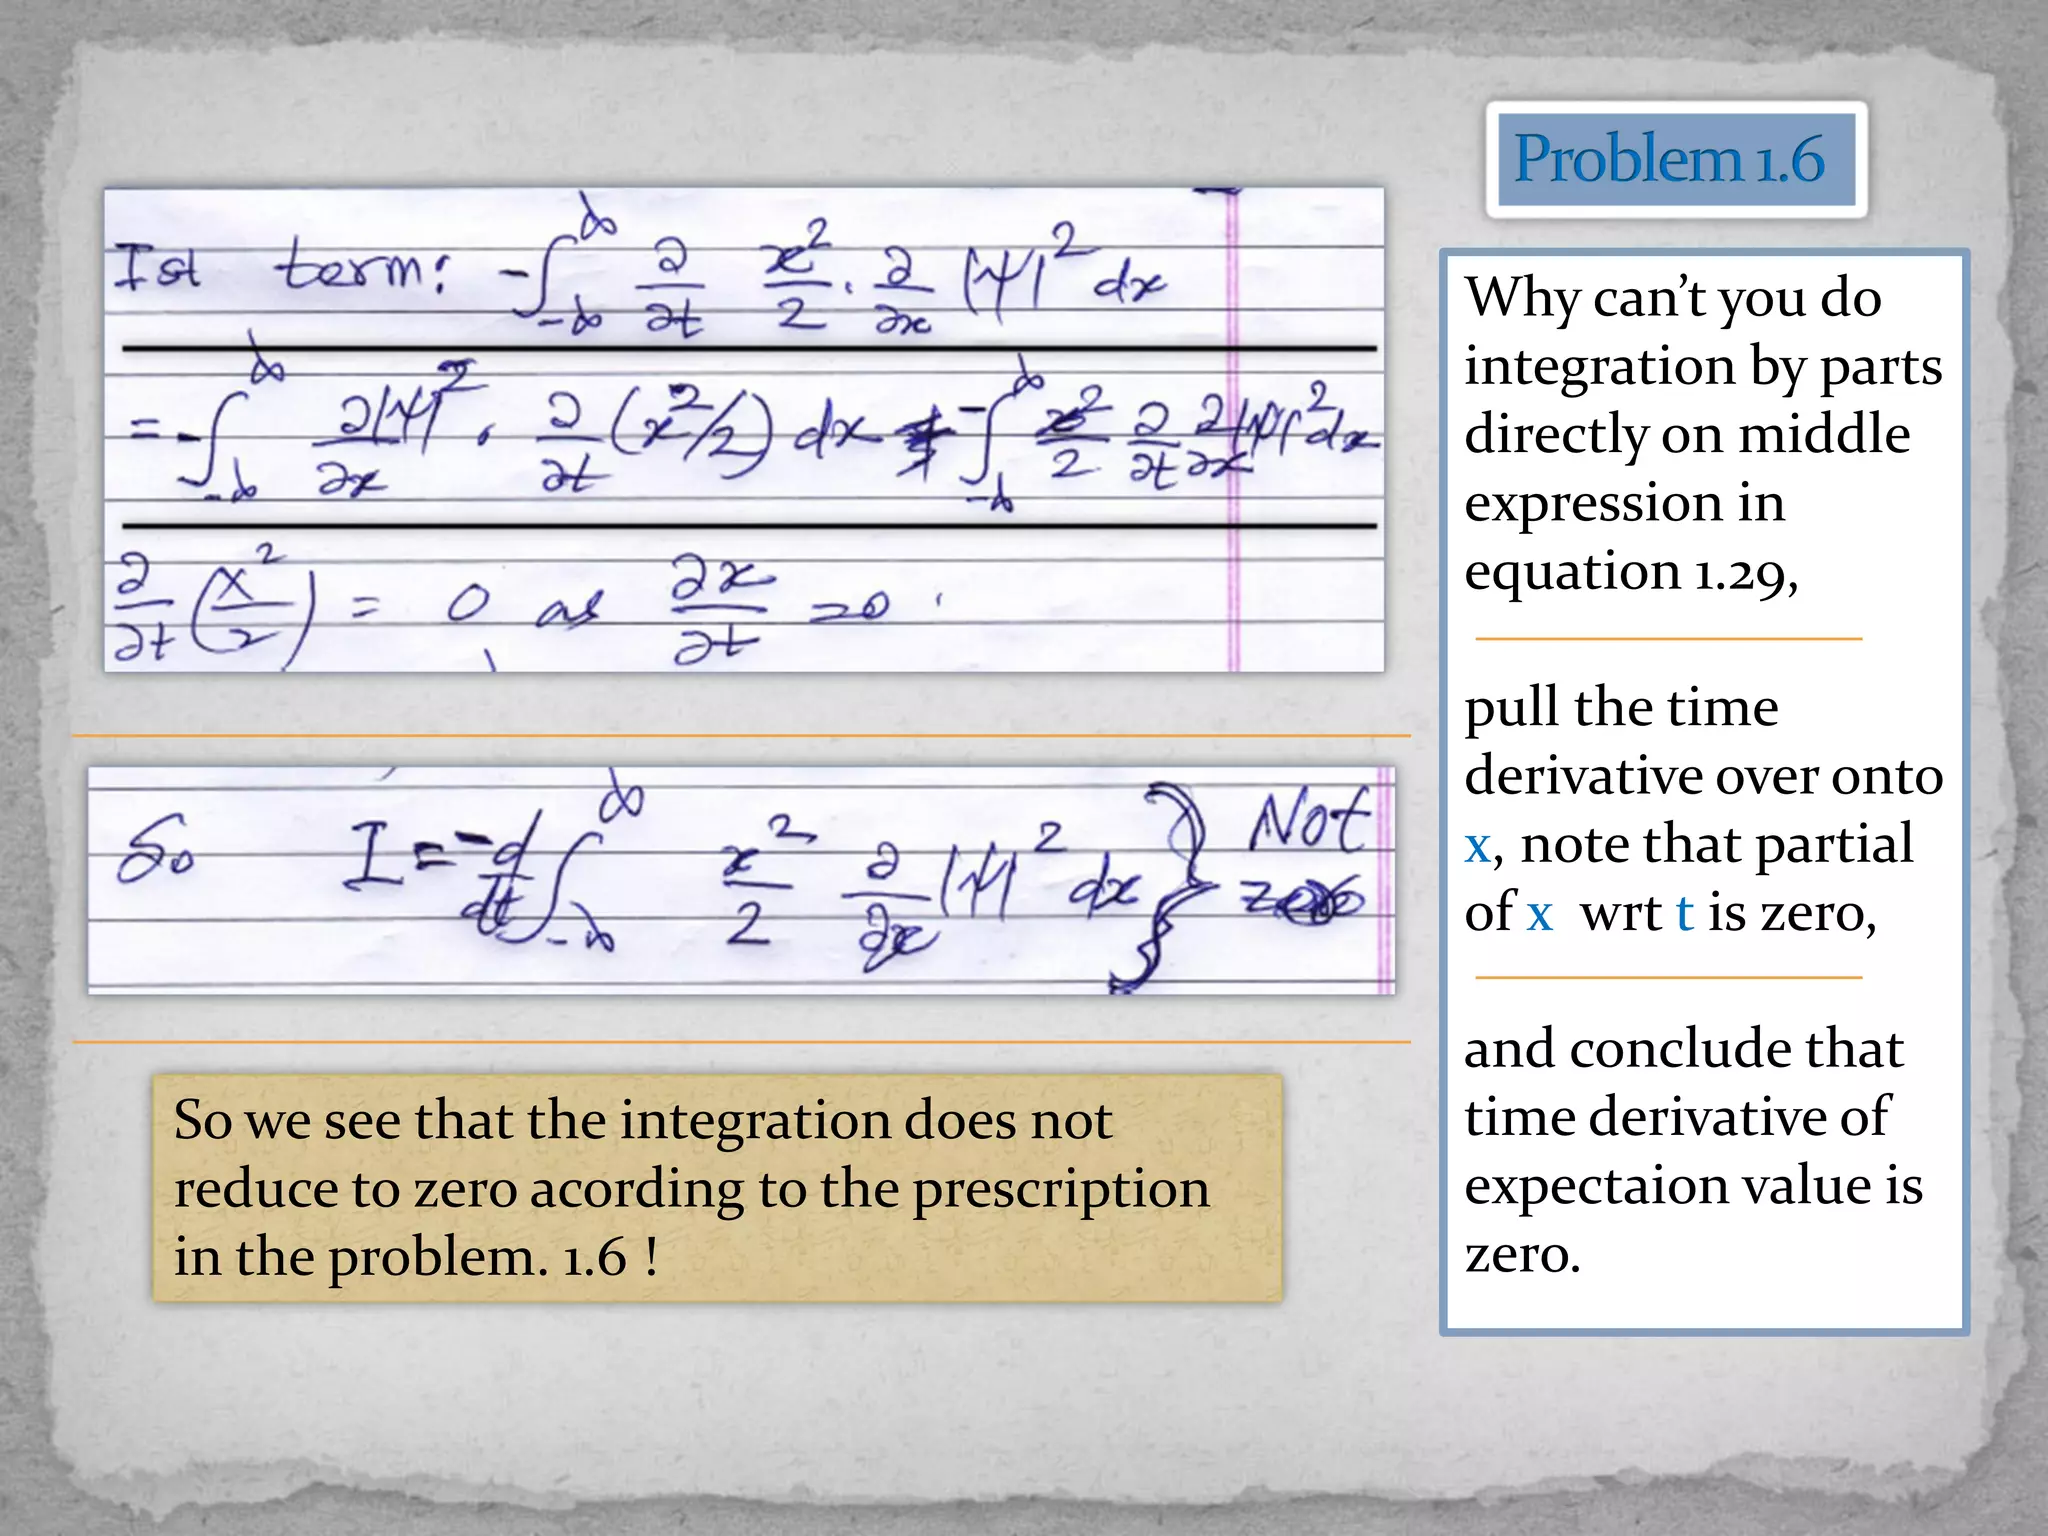 Problem 1.6
Ist term: -∫_{-∞}^{∞} ∂/∂t x²/2 · ∂/∂x |ψ|² dx
= -∫_{-∞}^{∞} ∂|ψ|²/∂x · ∂/∂t (x²/2) dx - ∫_{-∞}^{∞} x²/2 ∂/∂t ∂/∂x |ψ|² dx
∂/∂t (x²/2) = 0 as ∂x/∂t = 0.
So I = -d/dt ∫_{-∞}^{∞} x²/2 ∂/∂x |ψ|² dx } Not
zero
So we see that the integration does not
reduce to zero acording to the prescription
in the problem. 1.6 !
Why can’t you do
integration by parts
directly on middle
expression in
equation 1.29,
pull the time
derivative over onto
x, note that partial
of x wrt t is zero,
and conclude that
time derivative of
expectaion value is
zero.